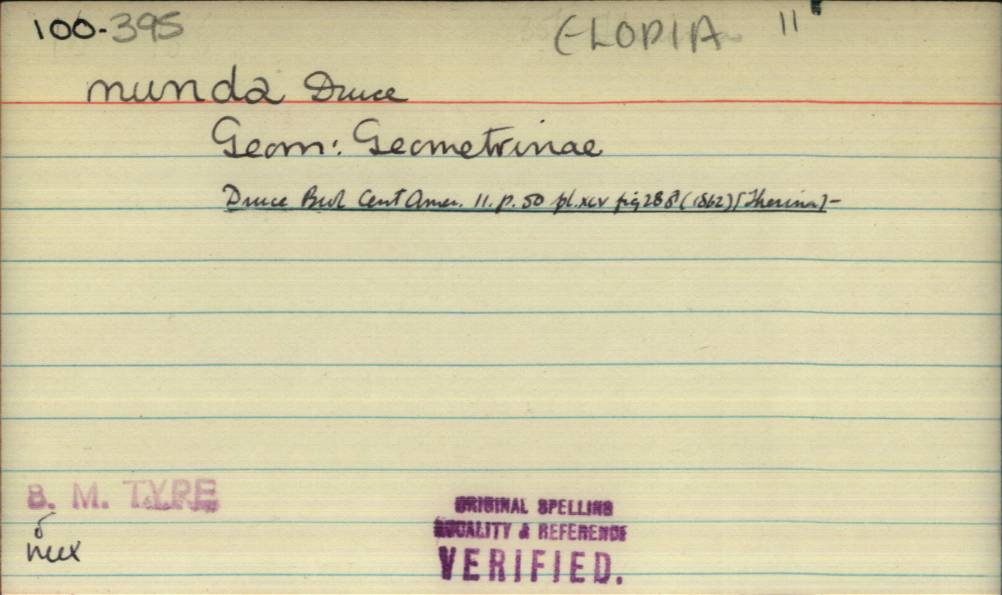 100-395 ELOPIA 11
nunda Druce
Geom: Geometrinae
Druce Biol Cent Amer. 11. p. 50 pl. xlv fig 28 ♂ (1862) [Therina]-
B. M. TYPE
♂
Mex
ORIGINAL SPELLING
LOCALITY & REFERENCE
VERIFIED.